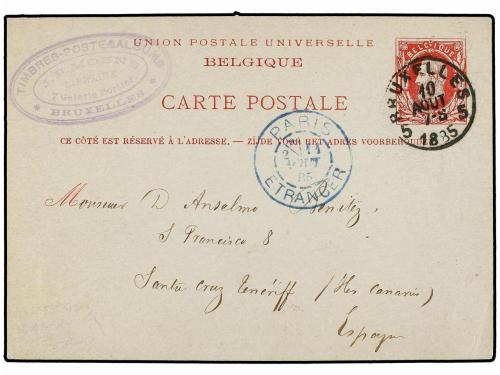 UNION POSTALE UNIVERSELLE
BELGIQUE
CARTE POSTALE
CE CÔTÉ EST RÉSERVÉ À L'ADRESSE. — ZIJDE VOOR HET ADRES VOORBEHOUDEN
TIMBRES-POSTE & ALBUMS
7 Galerie Bortier
* BRUXELLES *
BELGIQUE
BRUXELLES
10
AOUT
7-S
5 5
1885
PARIS
AOUT
85
ETRANGER
Monsieur D Anselmo Benitéz
S Francisco 8
Santa Cruz Ténériff (Iles Canaries)
Espagne